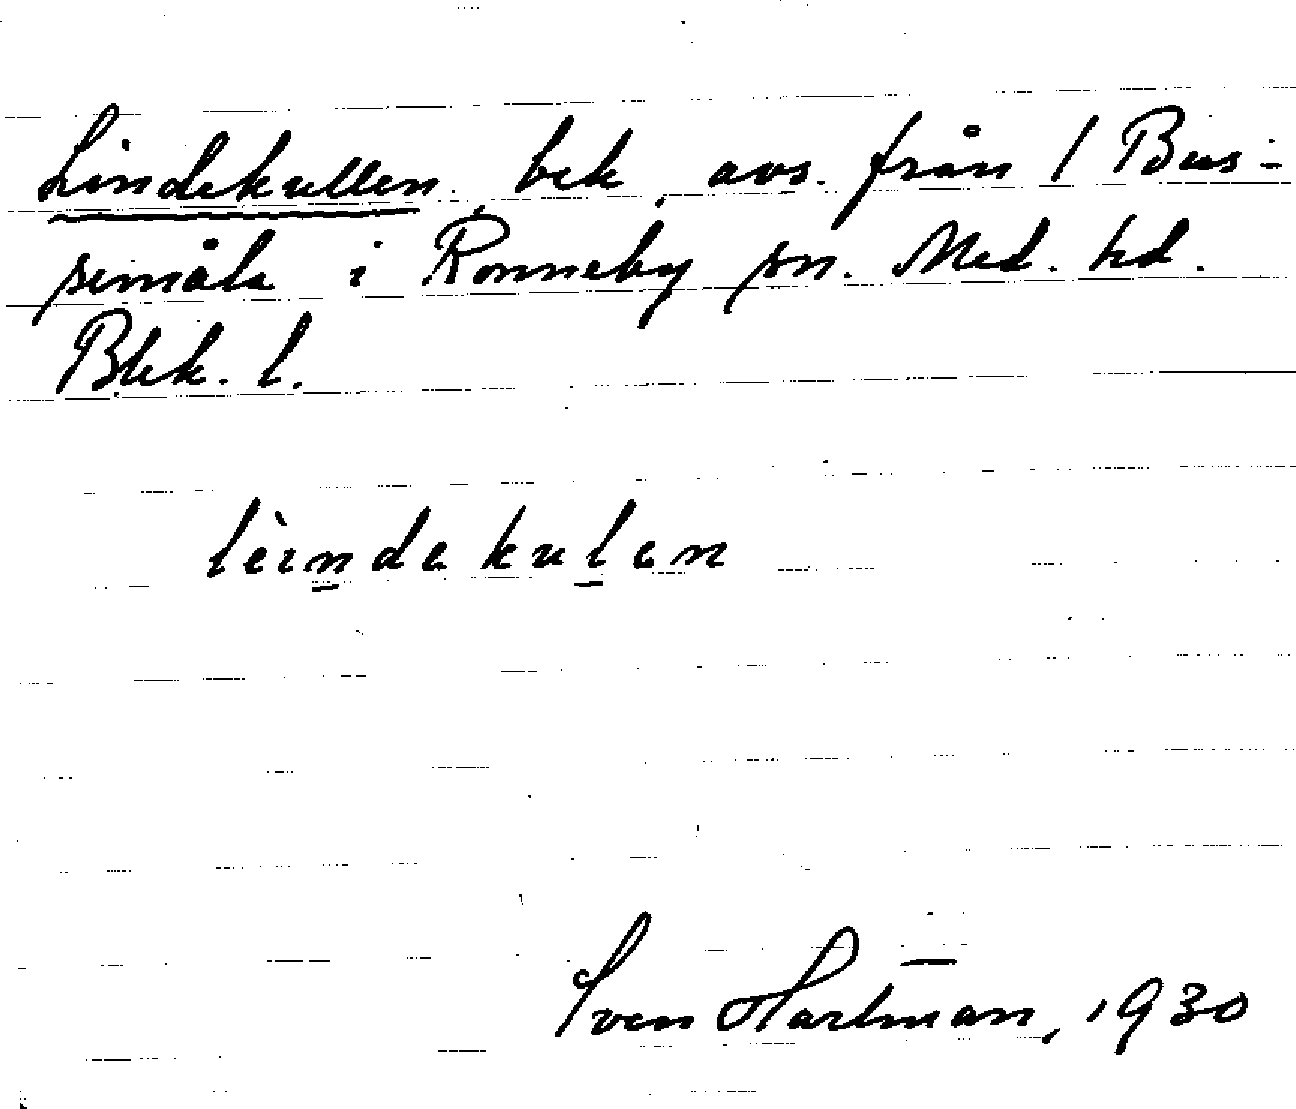 Lindekullen, bek, avs. från 1 Bus-
semåla i Ronneby sn. Med. hd.
Blek. l.
lèindekulen
Sven Hartman, 1930